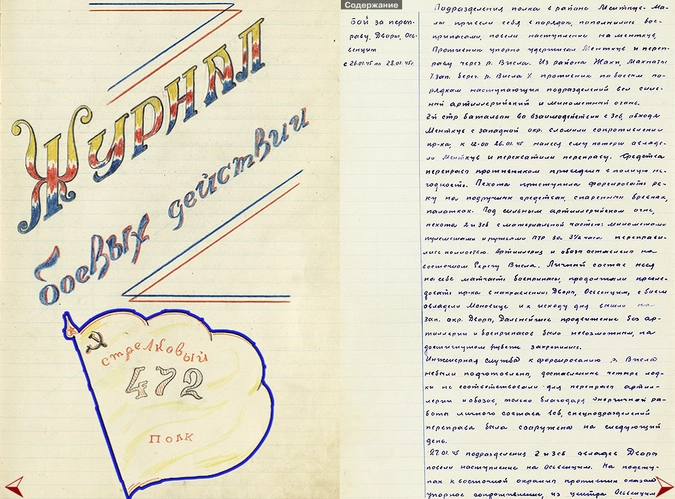 Журнал
боевых действий
стрелковый
472
полк
Содержание
Бой за переп-
раву, Дворы, Ос-
венцим
с 26.01.45 по 28.01.45г.
Подразделения полка в районе Менткув. Ма-
ло привели себя в порядок, пополнились бое-
припасами, повели наступление на Менткув.
Противник упорно удерживал Менткув и переп-
раву через р. Висла. Из района Жаки,
/зап. берег р. Висла/ противник по боевым по-
рядкам наступающих подразделений вел силь-
ный артиллерийский и минометный огонь.
2й стр батальон во взаимодействии с 3сб, обходя
Менткув с западной окр. сломили сопротивление
пр-ка, к 12-00 26.01.45 нанеся ему потери овладе-
ли Менткув и перехватили переправу. Средства
переправы противником приведены в полную не-
годность. Пехота приступила форсировать ре-
ку на подручных средствах, спаренных бревнах,
палатках. Под сильным артиллерийском огнем,
пехота 2 и 3сб с материальной частью: минометами
пулеметами и ружьями ПТР за часа переправи-
лись полностью. Артиллерия и обоз оставались на
восточном берегу Висла. Личный состав неся
на себе матчасть боеприпасы, продолжали пресле-
довать пр-ка в направлении Дворы, Освенцим, с боем
овладели Моновице и к исходу дня вышли на
зап. окр. Дворы, Дальнейшее продвижение без ар-
тиллерии и боеприпасов было невозможным, на
достигнутом рубеже закрепились.
Инженерная служба к форсированию р. Висла
небыли подготовлены, доставленные четыре лод-
ки не соответствовали для переправы артил-
лерии и обозов, только благодаря энергичной ра-
боты личного состава 1сб, спецподразделений
переправа была сооружена на следующий
день.
27.01.45 подразделения 2 и 3сб овладев Дворы
повели наступление на Освенцим. На подступ-
ах к восточной окраины противник оказал
упорное сопротивление, из центра Освенцим